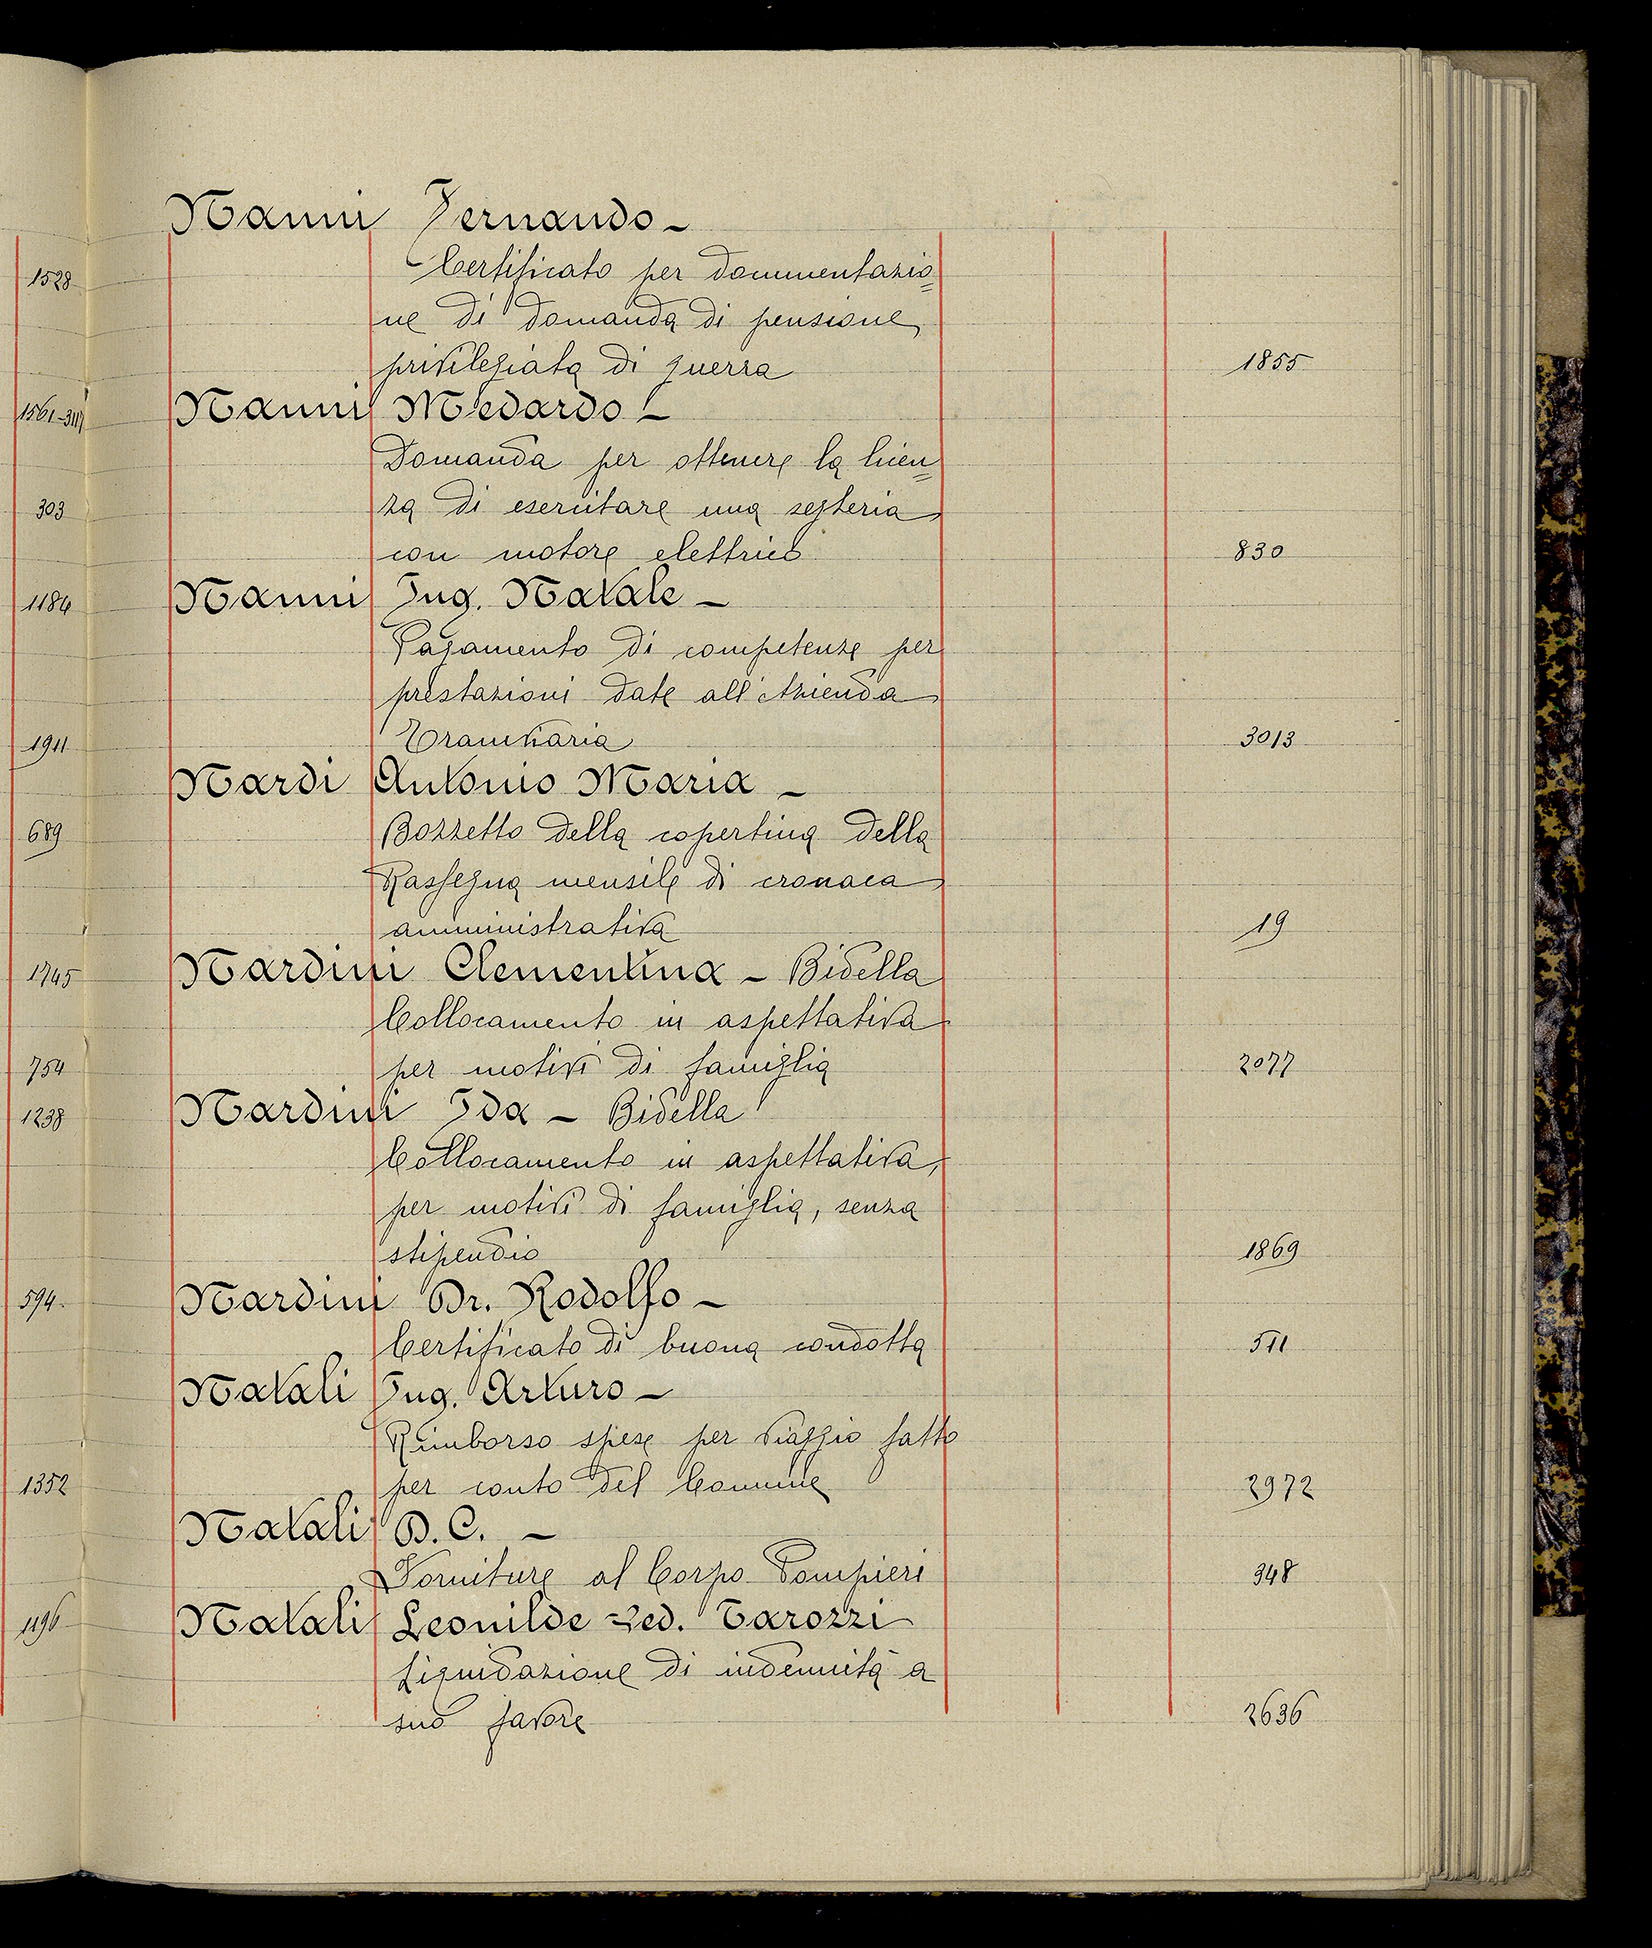 Nanni Fernando -
Certificato per documentazio=
ne di domanda di pensione
privilegiata di guerra 1855
Nanni Medardo -
Domanda per ottenere la licen=
za di esercitare una segheria
con motore elettrico 830
Nanni Ing. Natale -
Pagamento di competenze per
prestazioni date all'Azienda
Tramviaria 3013
Nardi Antonio Maria -
Bozzetto della copertina della
Rassegna mensile di cronaca
amministrativa 19
Nardini Clementina - Bidella
Collocamento in aspettativa
per motivi di famiglia 2077
Nardini Ida - Bidella
Collocamento in aspettativa,
per motivi di famiglia, senza
stipendio 1869
Nardini Dr. Rodolfo -
Certificato di buona condotta 511
Natali Ing. Arturo -
Rimborso spese per viaggio fatto
per conto del Comune 2972
Natali D. C. -
Forniture al Corpo Pompieri 948
Natali Leonilde ved. Tarozzi
Liquidazione di indennità a
suo favore 2636
1528
1561-3117
303
1184
1911
689
1745
754
1238
594.
1352
1196